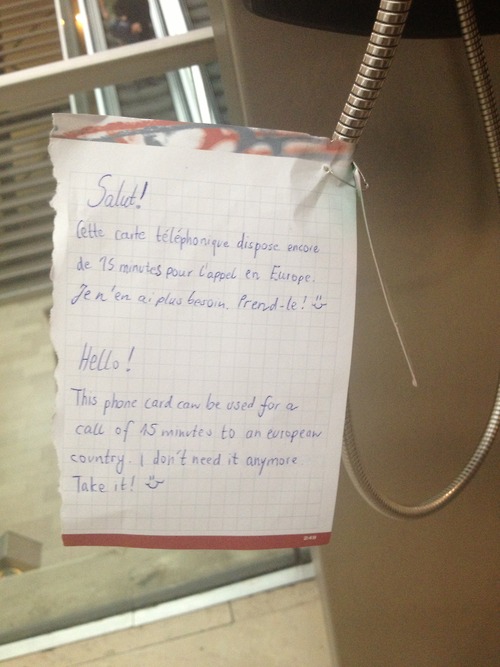 Salut!
Cette carte téléphonique dispose encore
de 15 minutes pour l'appel en Europe.
Je n'en ai plus besoin. Prend-le!
Hello!
This phone card can be used for a
call of 15 minutes to an european
country. I don't need it anymore
Take it!